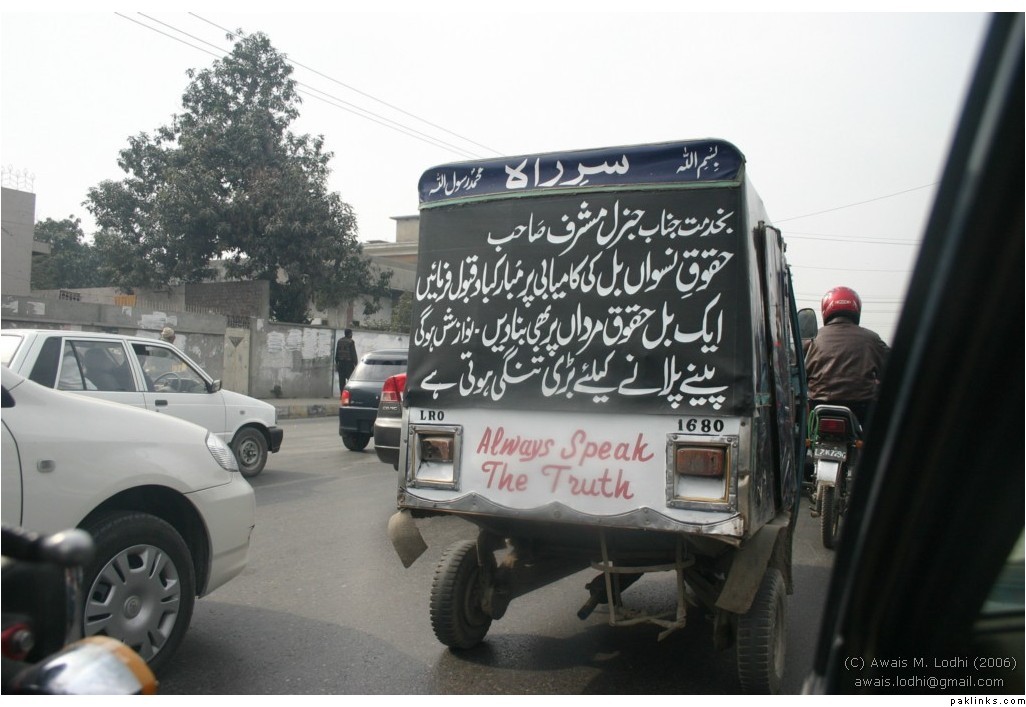 بِسْمِ اللہ سرِ راہ محمد رسول اللہ
بخدمت جناب جنرل مشرف صاحب
حقوقِ نسواں بل کی کامیابی پر مُبارکباد قبول فرمائیں
ایک بل حقوق مرداں پر بھی بنا دیں - نوازش ہوگی
پینے پلانے کیلئے بڑی تنگی ہوتی ہے
LRO 1680
Always Speak
The Truth
(C) Awais M. Lodhi (2006)
awais.lodhi@gmail.com
paklinks.com